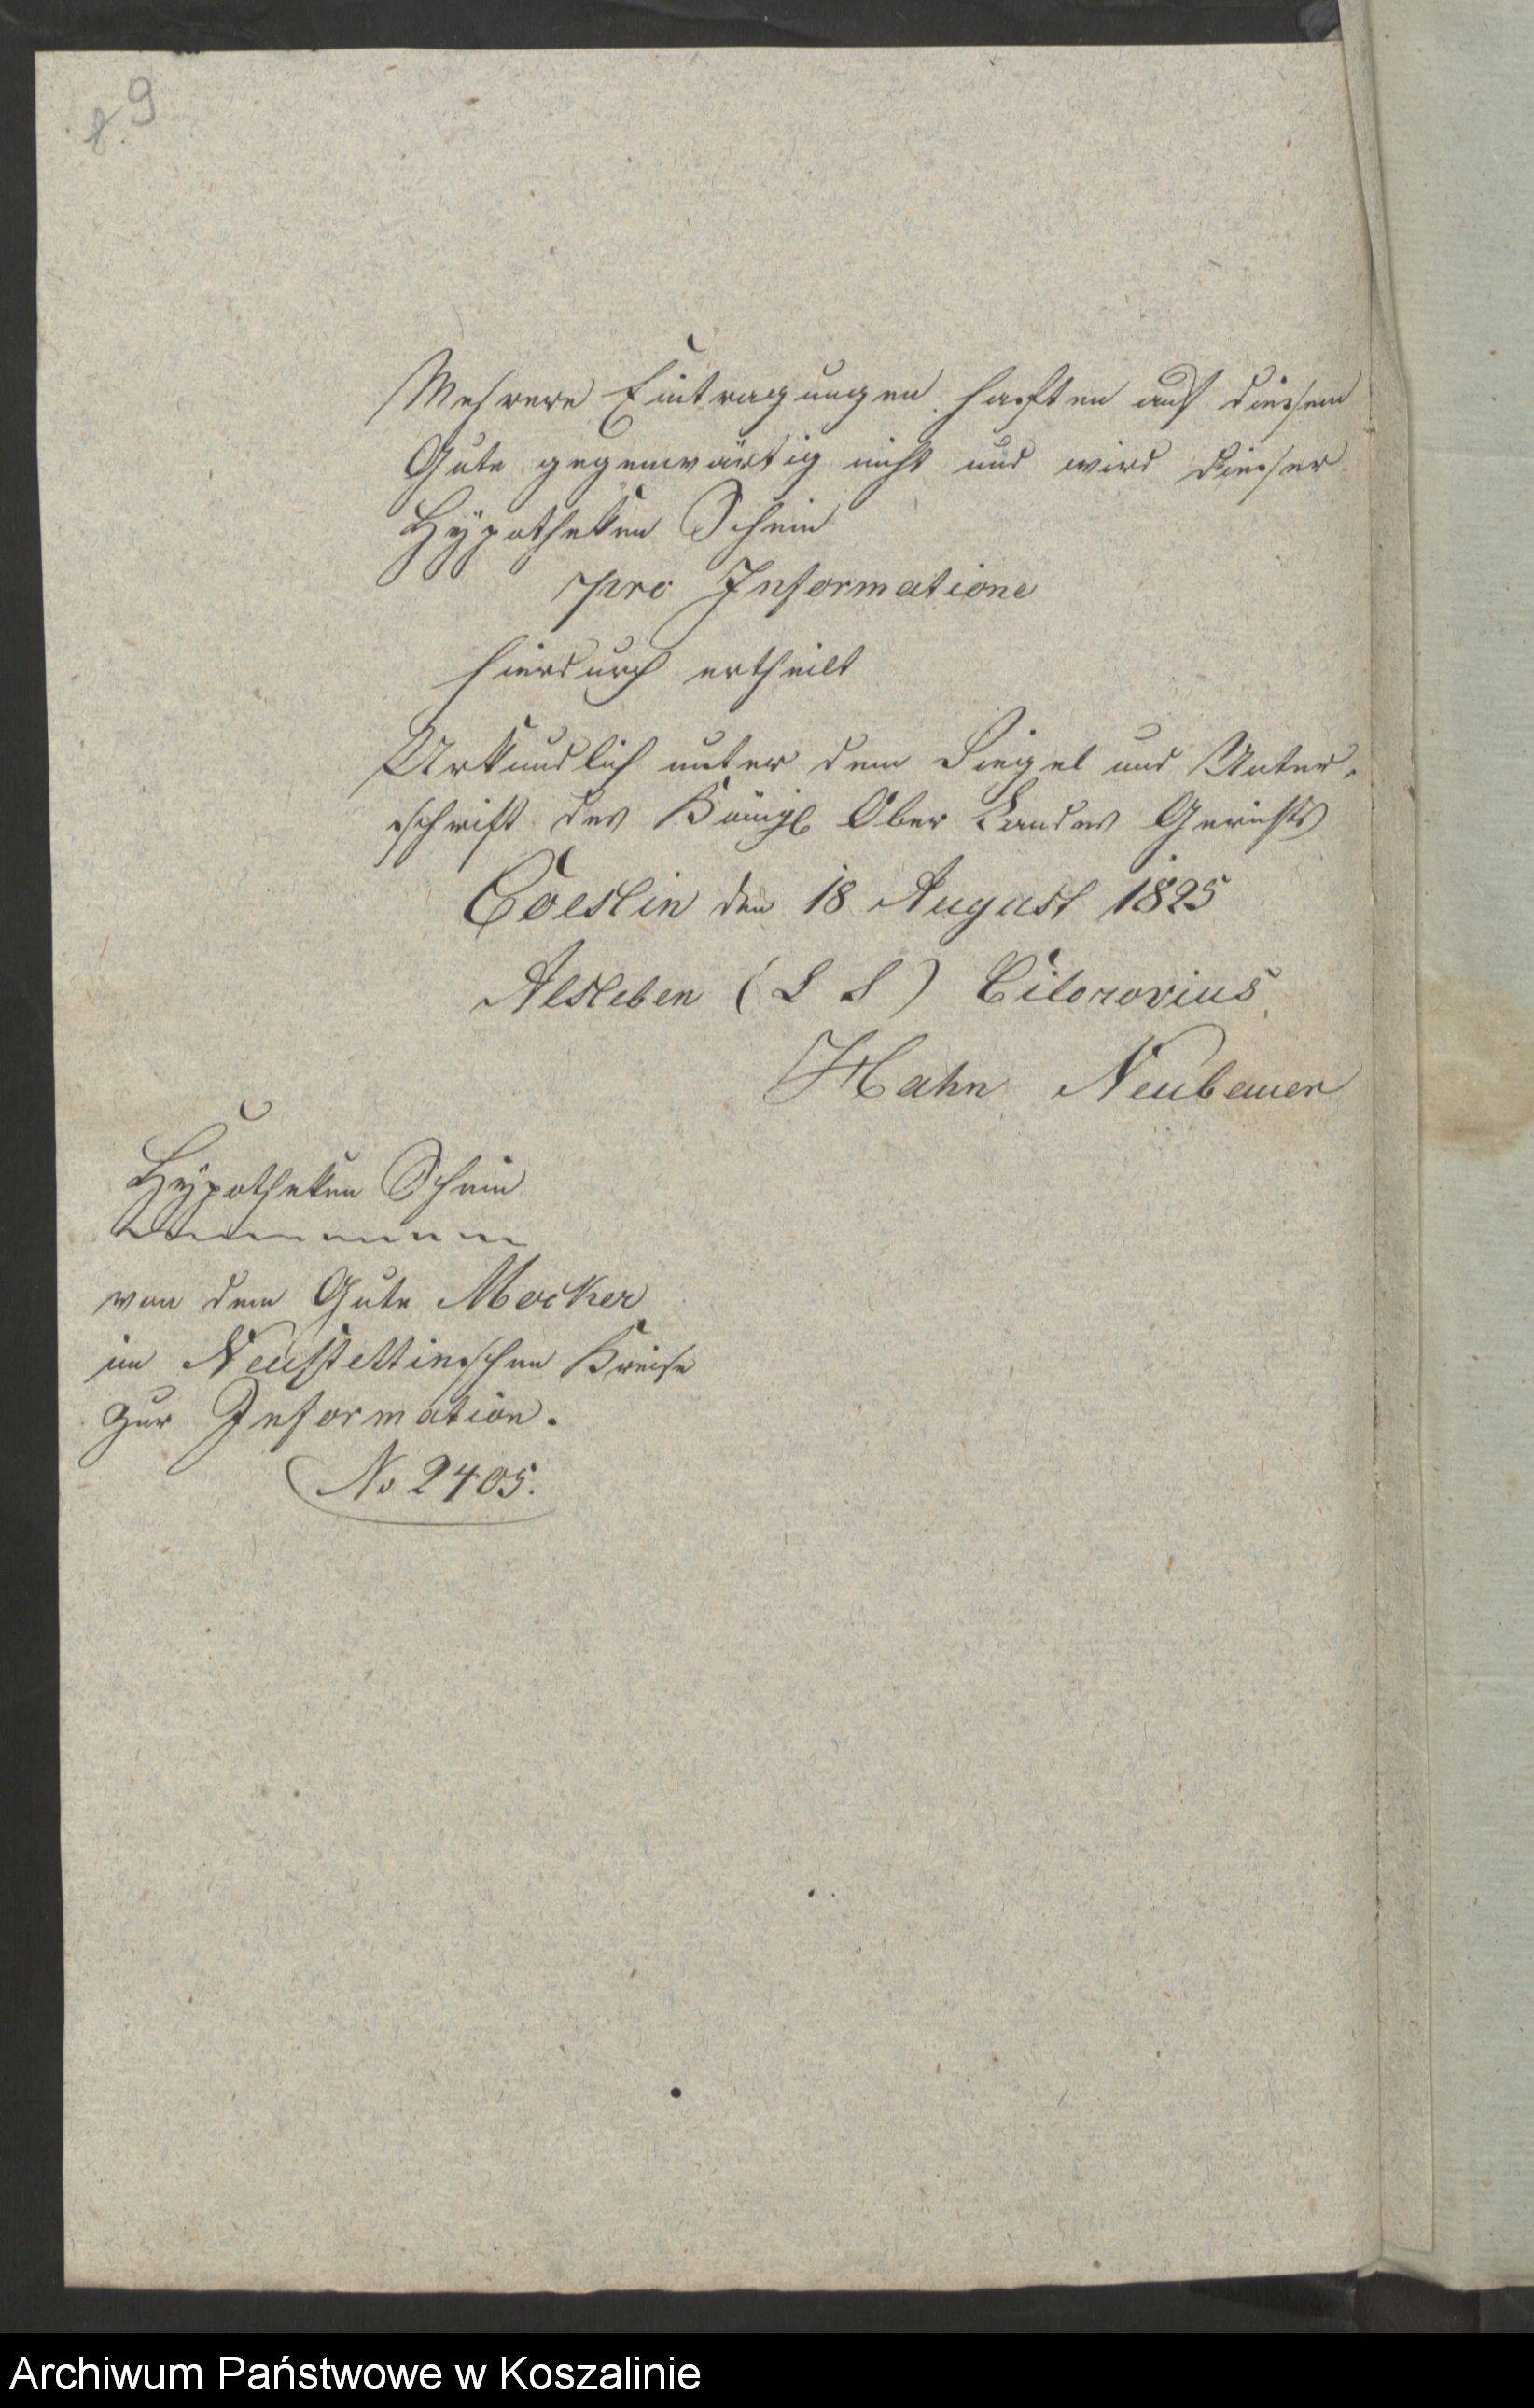 89
Mehrere Eintragungen haften auf diesem
Gute gegenwärtig nicht und wird dieser
Hypotheken Schein
pro Informatione
hierdurch ertheilt
Urkundlich unter dem Siegel und Unter-
schrift des Königl Ober Landes Gerichts
Coeslin den 18 August 1825
Alsleben (L S)
Hahn Neubauer
Hypotheken Schein
von dem Gute Mocker
im Neustettinschen Kreise
zur Information.
No 2405.
Archiwum Państwowe w Koszalinie